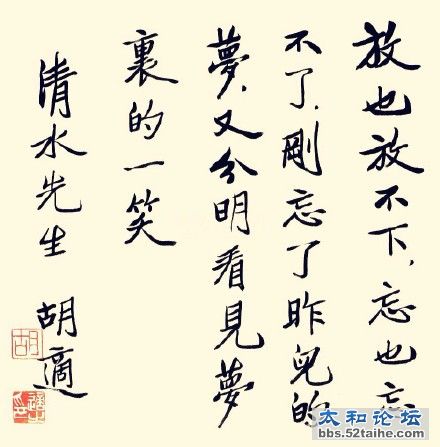 放也放不下,忘也忘
不了,剛忘了昨兒的
夢,又分明看見夢
裏的一笑
清水先生 胡適
胡
太和论坛
bbs.52taihe.com